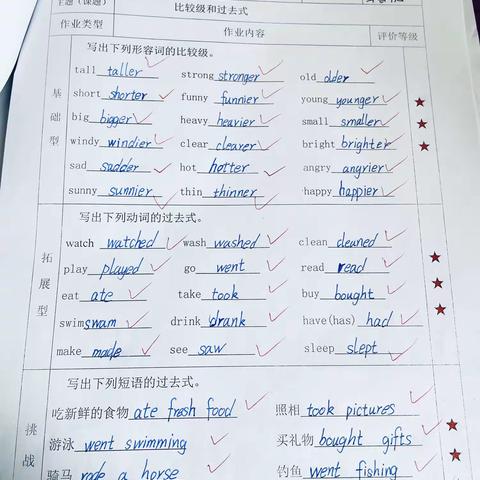 主题（课题） 比较级和过去式
作业类型 作业内容 评价等级
写出下列形容词的比较级。
tall taller strong stronger old older
short shorter funny funnier young younger
big bigger heavy heavier small smaller
windy windier clear clearer bright brighter
sad sadder hot hotter angry angrier
sunny sunnier thin thinner happy happier
基础型
写出下列动词的过去式。
watch watched wash washed clean cleaned
play played go went read read
eat ate take took buy bought
swim swam drink drank have(has) had
make made see saw sleep slept
拓展型
写出下列短语的过去式。
吃新鲜的食物 ate fresh food 照相 took pictures
游泳 went swimming 买礼物 bought gifts
骑马 rode a horse 钓鱼 went fishing
挑战